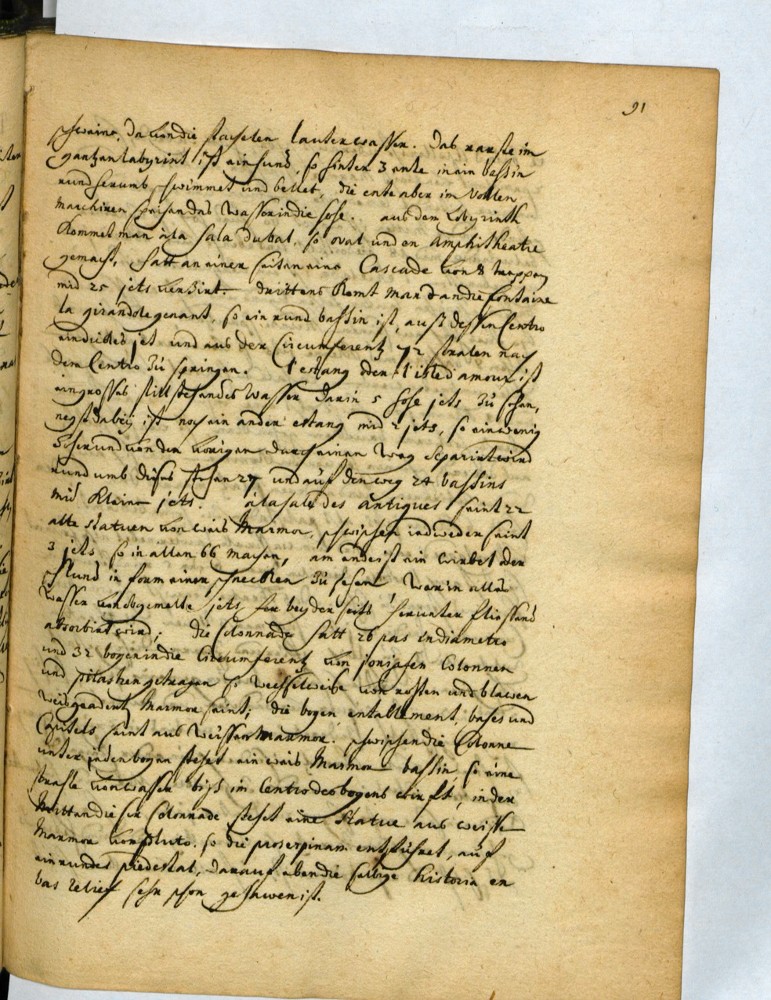 91
schweine, da von die stachelen lauter wasser. Das rareste im
gantzen labyrint ist ein hund, so hinter 3 ente in ein bassin
rund herumb schwimmet und bellet, die ente aber im vollen
marchiren speisen das wasser in die höhe. aus dem Labyrinth
kommet man à la sala du bal, so oval und en amphitheatre
gemacht, hatt an einer seiten eine Cascade von 8 treppen
mid 25 jets verzirt. drittens komt man d' an die fontaine
la girandole genant, so ein rund bassin ist, auß dessen Centro
ein dickes jet und aus der Circumferentz 72 stralen nach
dem Centro zu springen. l'estang oder l'isle d'amour ist
ein grosses still stehendes wasser darin 5 hohe jets zu sehen,
negst dabey ist noch ein ander estang mid 2 jets, so ein wenig
höher und von den vorigen durch einen weg separirt wird
rund umb dises stehen 27 und auf den weg 24 bassins
mid kleine jets. à la sale des antiques seint 22
alte statuen von weis Marmor, zwischen iedweder seint
3 jets so in allen 66 machen, am ende ist ein wirbel oder
schlund in form einer schnecken zu sehen warin alles
wasser von obgemelte jets her beyder seits herunter fliessend
absorbirt wird; die Colonnade hatt 26 pas en diametro
und 32 bogen in die Circumferentz von jonischen Colonnen
und pilastren getragen so wechselweise von rothen und blawen
weisgeadert Marmor seint; die bogen entablement, bases und
Capitels seint aus weissen marmor. zwischen die Colonne
unter jeden bogen stehet ein weis Marmor bassin so eine
strahle von wasser biß im Centro des bogens wirfft, in der
Mitten diser Colonnade stehet eine Statue aus weisse
Marmor von Pluto, so die proserpinam entführet, auf
ein rundes piedestal, darauf eben die selbige historia en
bas relief sehr schön gehawen ist.